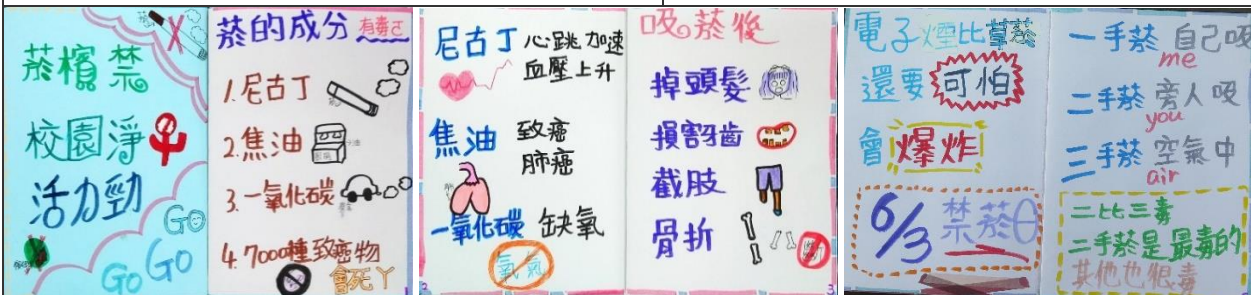 菸檳禁
校園淨
活力勁
GO
GO
GO
菸的成分
有毒ㄛ
1.尼古丁
2.焦油
3.一氧化碳
4.7000種致癌物
會死ㄚ
尼古丁 心跳加速
血壓上升
焦油 致癌
肺癌
一氧化碳 缺氧
氧氣
2
吸菸後
掉頭髮
損害牙齒
截肢
骨折
3
電子煙比菸
還要可怕
會爆炸
6/3禁菸日
一手菸 自己吸
me
二手菸 旁人吸
you
三手菸 空氣中
air
二比三毒
二手菸是最毒的
其他也很毒